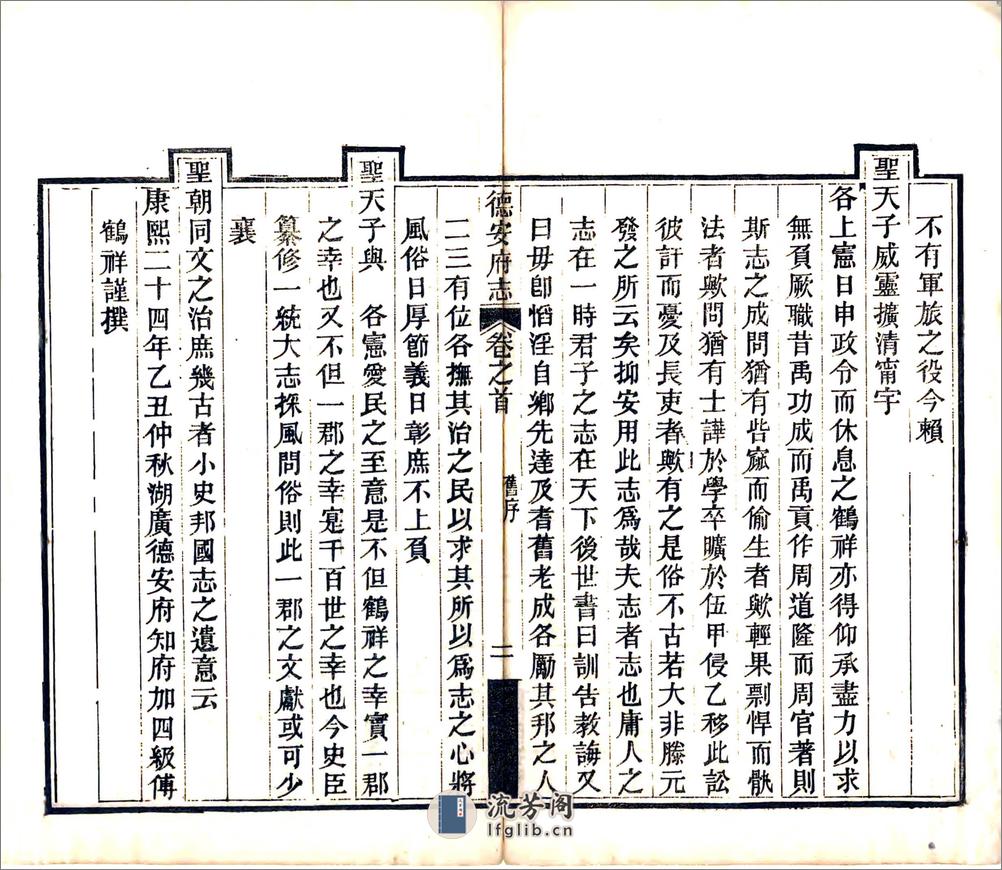 不有軍旅之役今賴
聖天子威靈擴清甯宇
各上憲日申政令而休息之鶴祥亦得仰承盡力以求
無負厥職昔禹功成而禹貢作周道隆而周官著則
斯志之成問猶有呰窳而偷生者歟輕果剽悍而骩
法者歟問猶有士譁於學卒曠於伍甲侵乙移此訟
彼訐而憂及長吏者歟有之是俗不古若大非滕元
發之所云矣抑安用此志爲哉夫志者志也庸人之
志在一時君子之志在天下後世書曰訓告教誨又
曰毋卽慆淫自鄉先達及耆舊老成各勵其邦之人
德安府志 卷之首 舊序 二
二三有位各撫其治之民以求其所以爲志之心將
風俗日厚節義日彰庶不上負
聖天子與 各憲愛民之至意是不但鶴祥之幸實一郡
之幸也又不但一郡之幸寔千百世之幸也今史臣
纂修一統大志採風問俗則此一郡之文獻或可少
襄
聖朝同文之治庶幾古者小史邦國志之遺意云
康熙二十四年乙丑仲秋湖廣德安府知府加四級傅
鶴祥謹撰
流芳阁
lfglib.cn